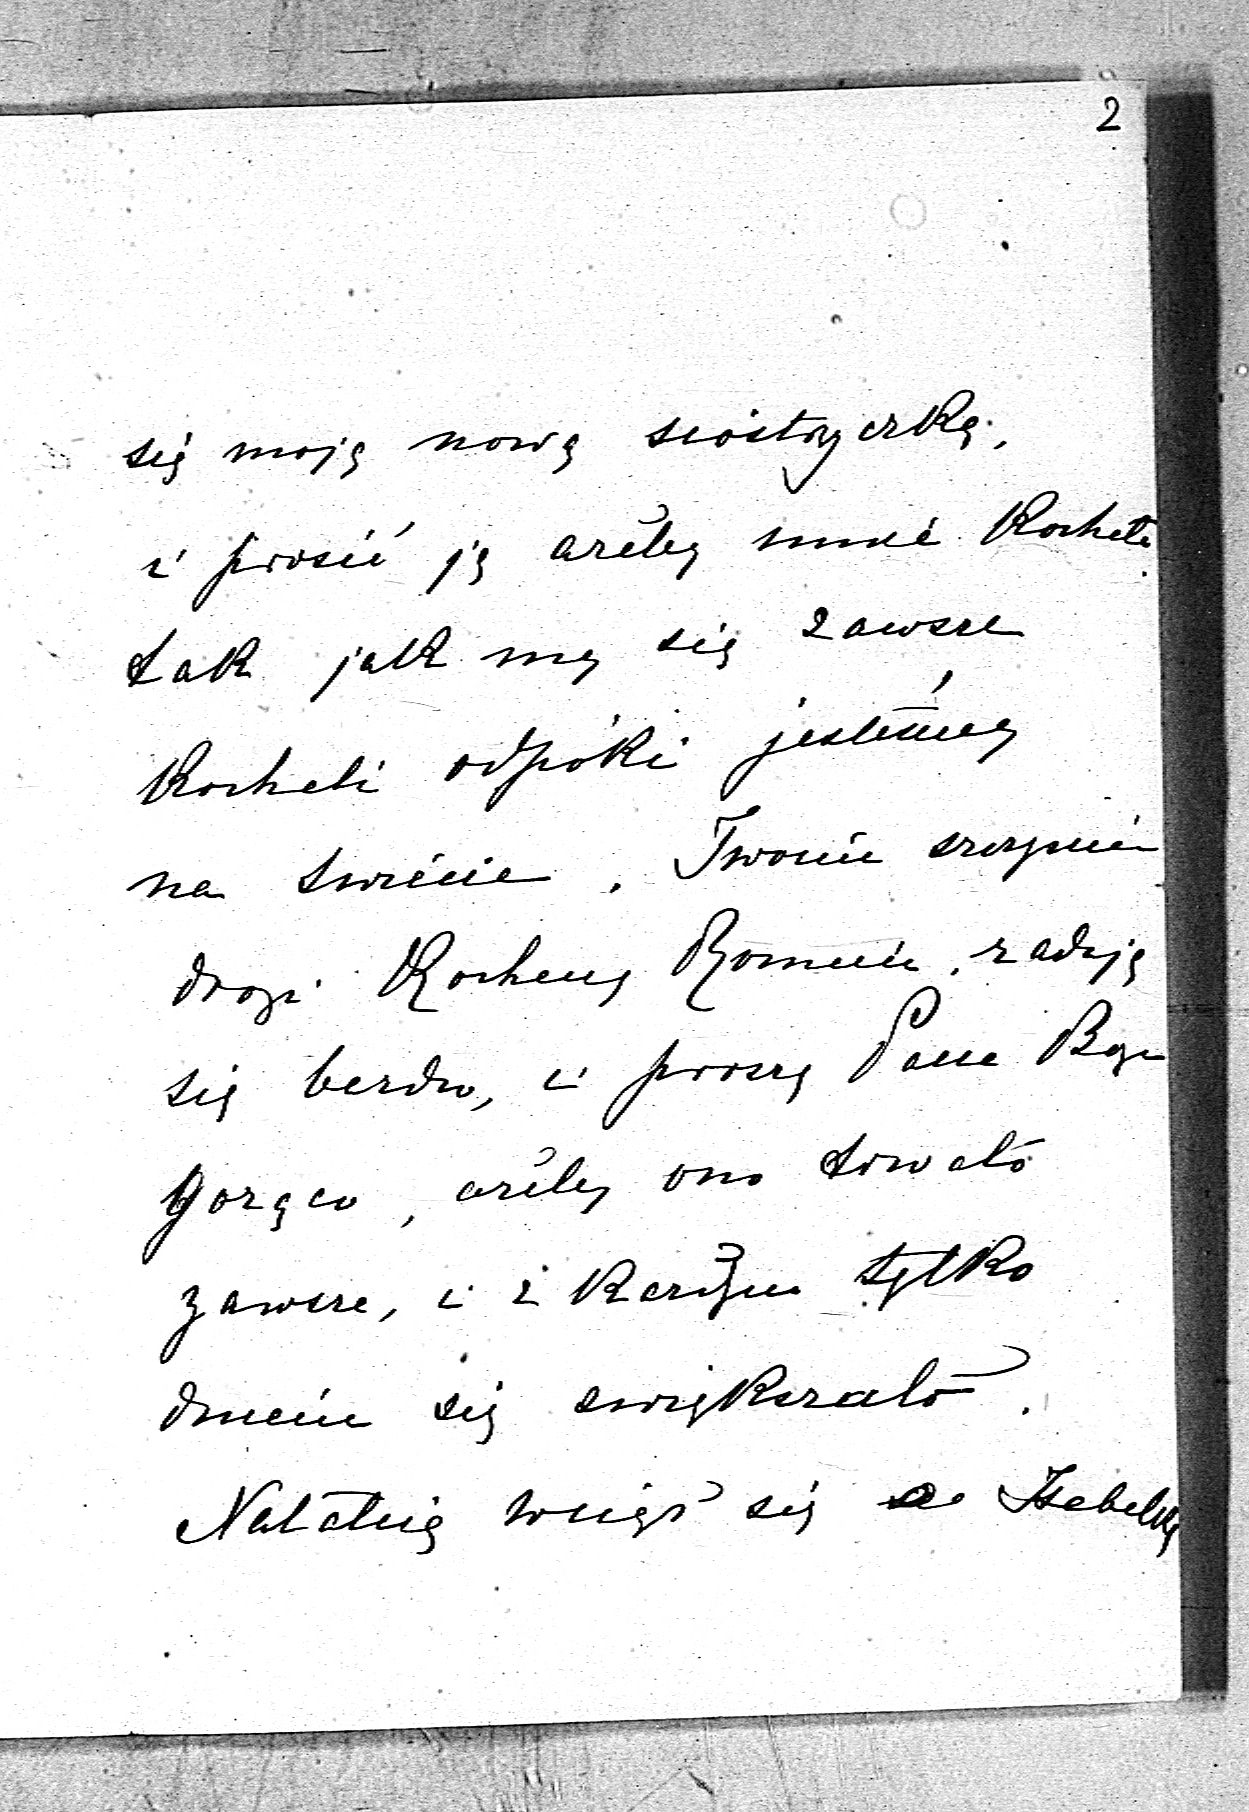 2
się moją nową siostrzyczką,
i prosić ją ażeby mnie kochała
tak jak my się zawsze
kochali odpóki jesteśmy
na świecie. Twoim szczęściem
drogi kochany Romciu, raduję
się bardzo, i proszę Pana Boga
gorąco, ażeby ono trwało
zawsze, i z każdym tylko
dniem się zwiększało.
Natalcię wciąż się Izabelką